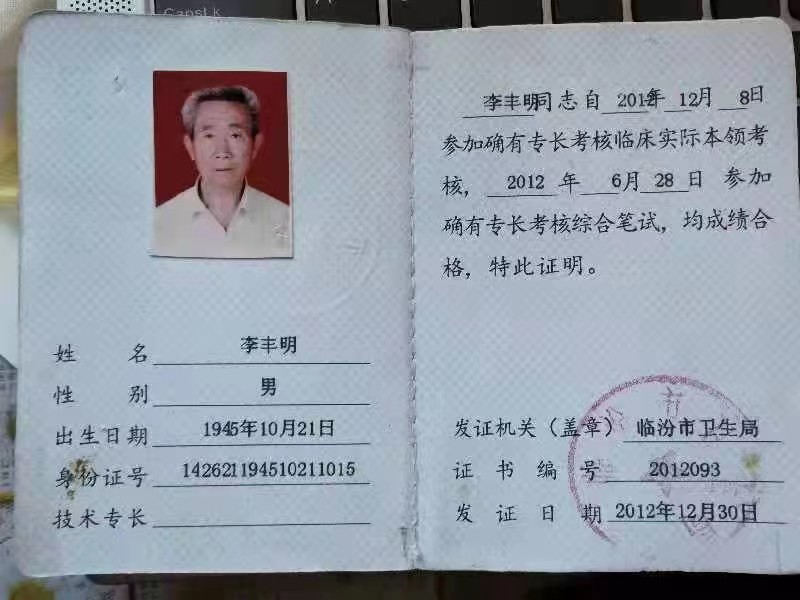 CapsLk
姓名 李丰明
性别 男
出生日期 1945年10月21日
身份证号 142621194510211015
技术专长
李丰明同志自 2012年 12月 8日
参加确有专长考核临床实际本领考
核，2012 年 6月 28 日 参加
确有专长考核综合笔试，均成绩合
格，特此证明。
发证机关（盖章） 临汾市卫生局
证书编号 2012093
发证日期 2012年12月30日